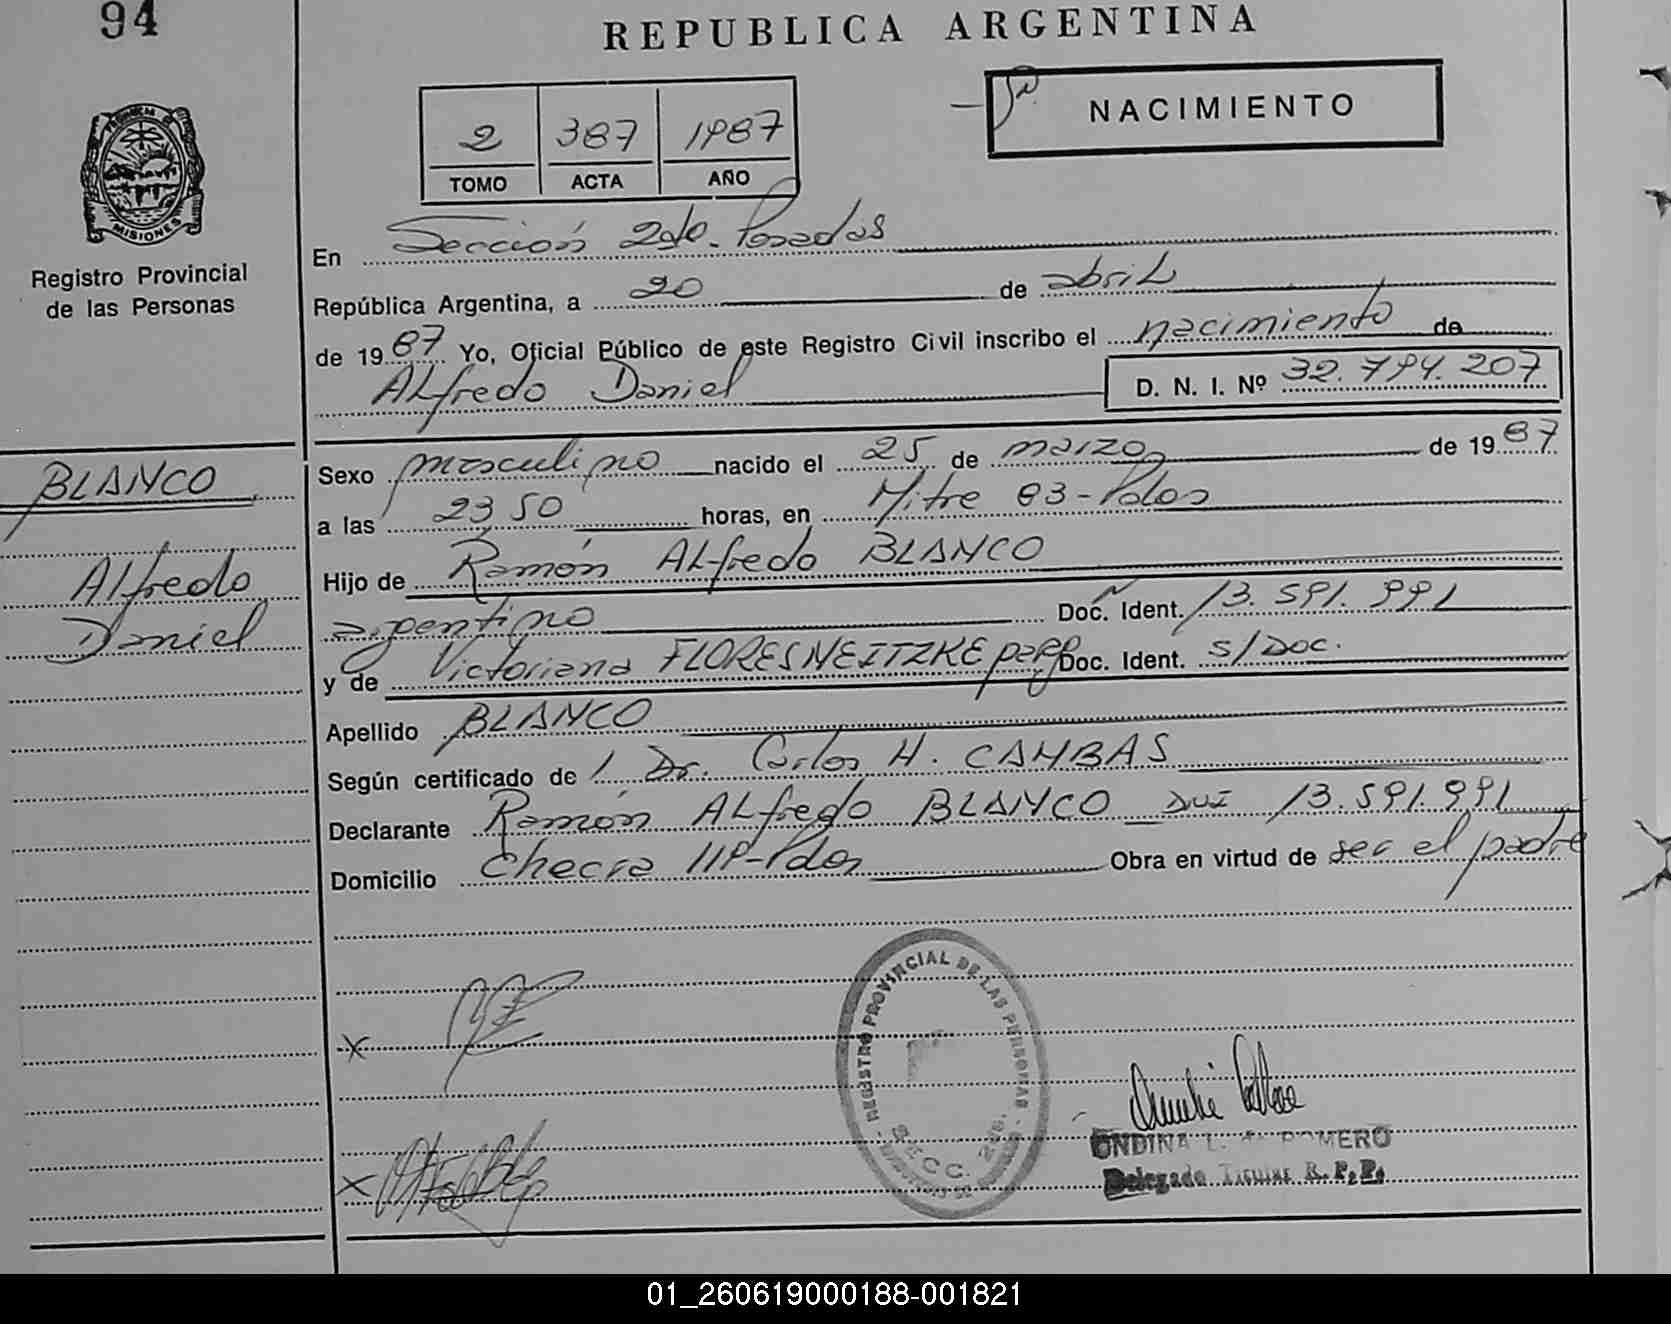 94
REPUBLICA ARGENTINA
NACIMIENTO
2 387 1987
TOMO ACTA AÑO
PROVINCIA DE
MISIONES
Registro Provincial
de las Personas
En Sección 2da. Posadas
República Argentina, a 20 de abril
de 1987 Yo, Oficial Público de este Registro Civil inscribo el nacimiento de
Alfredo Daniel D. N. I. Nº 32.794.207
BLANCO
Alfredo
Daniel
Sexo masculino nacido el 25 de marzo de 1987
a las 23 50 horas, en Mitre 83-Pdas
Hijo de Ramón Alfredo BLANCO
argentino Doc. Ident. 13.591.991
y de Victoriana FLORES NEITZKE parag Doc. Ident. s/Doc.
Apellido BLANCO
Según certificado de Dr. Carlos H. CAMBAS
Declarante Ramón Alfredo BLANCO DNI 13.591.991
Domicilio Chacra 119-Pdas Obra en virtud de ser el padre
REGISTRO PROVINCIAL DE LAS PERSONAS
SECC. 2da.
x
x
ONDINA L. ROMERO
Delegada Titular R. P. P.
01_260619000188-001821